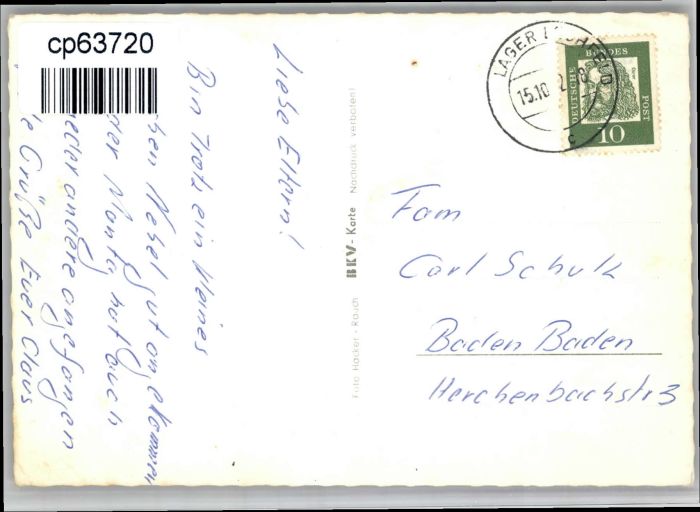 cp63720
Liebe Eltern!
Bin Trotz ein kleines
chen Nebel gut angekommen
der Montag hat auch
wieder angefangen
Grüße Euer Claus
BKV - Karte Nachdruck verboten!
Foto Häcker - Rauch
LAGER LECHFELD
15.10.
c
DEUTSCHE BUNDES POST
10
Fam
Carl Schulz
Baden Baden
Herchenbachstr 3